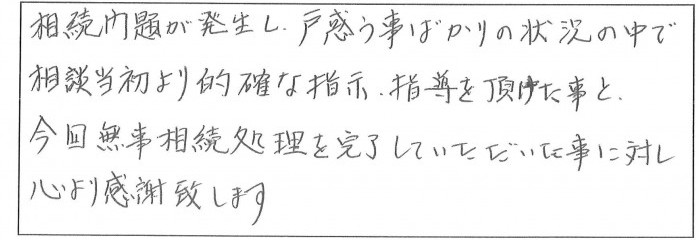 相続問題が発生し、戸惑う事ばかりの状況の中で
相談当初より的確な指示、指導を頂けた事と、
今回無事相続処理を完了していただいた事に対し
心より感謝致します